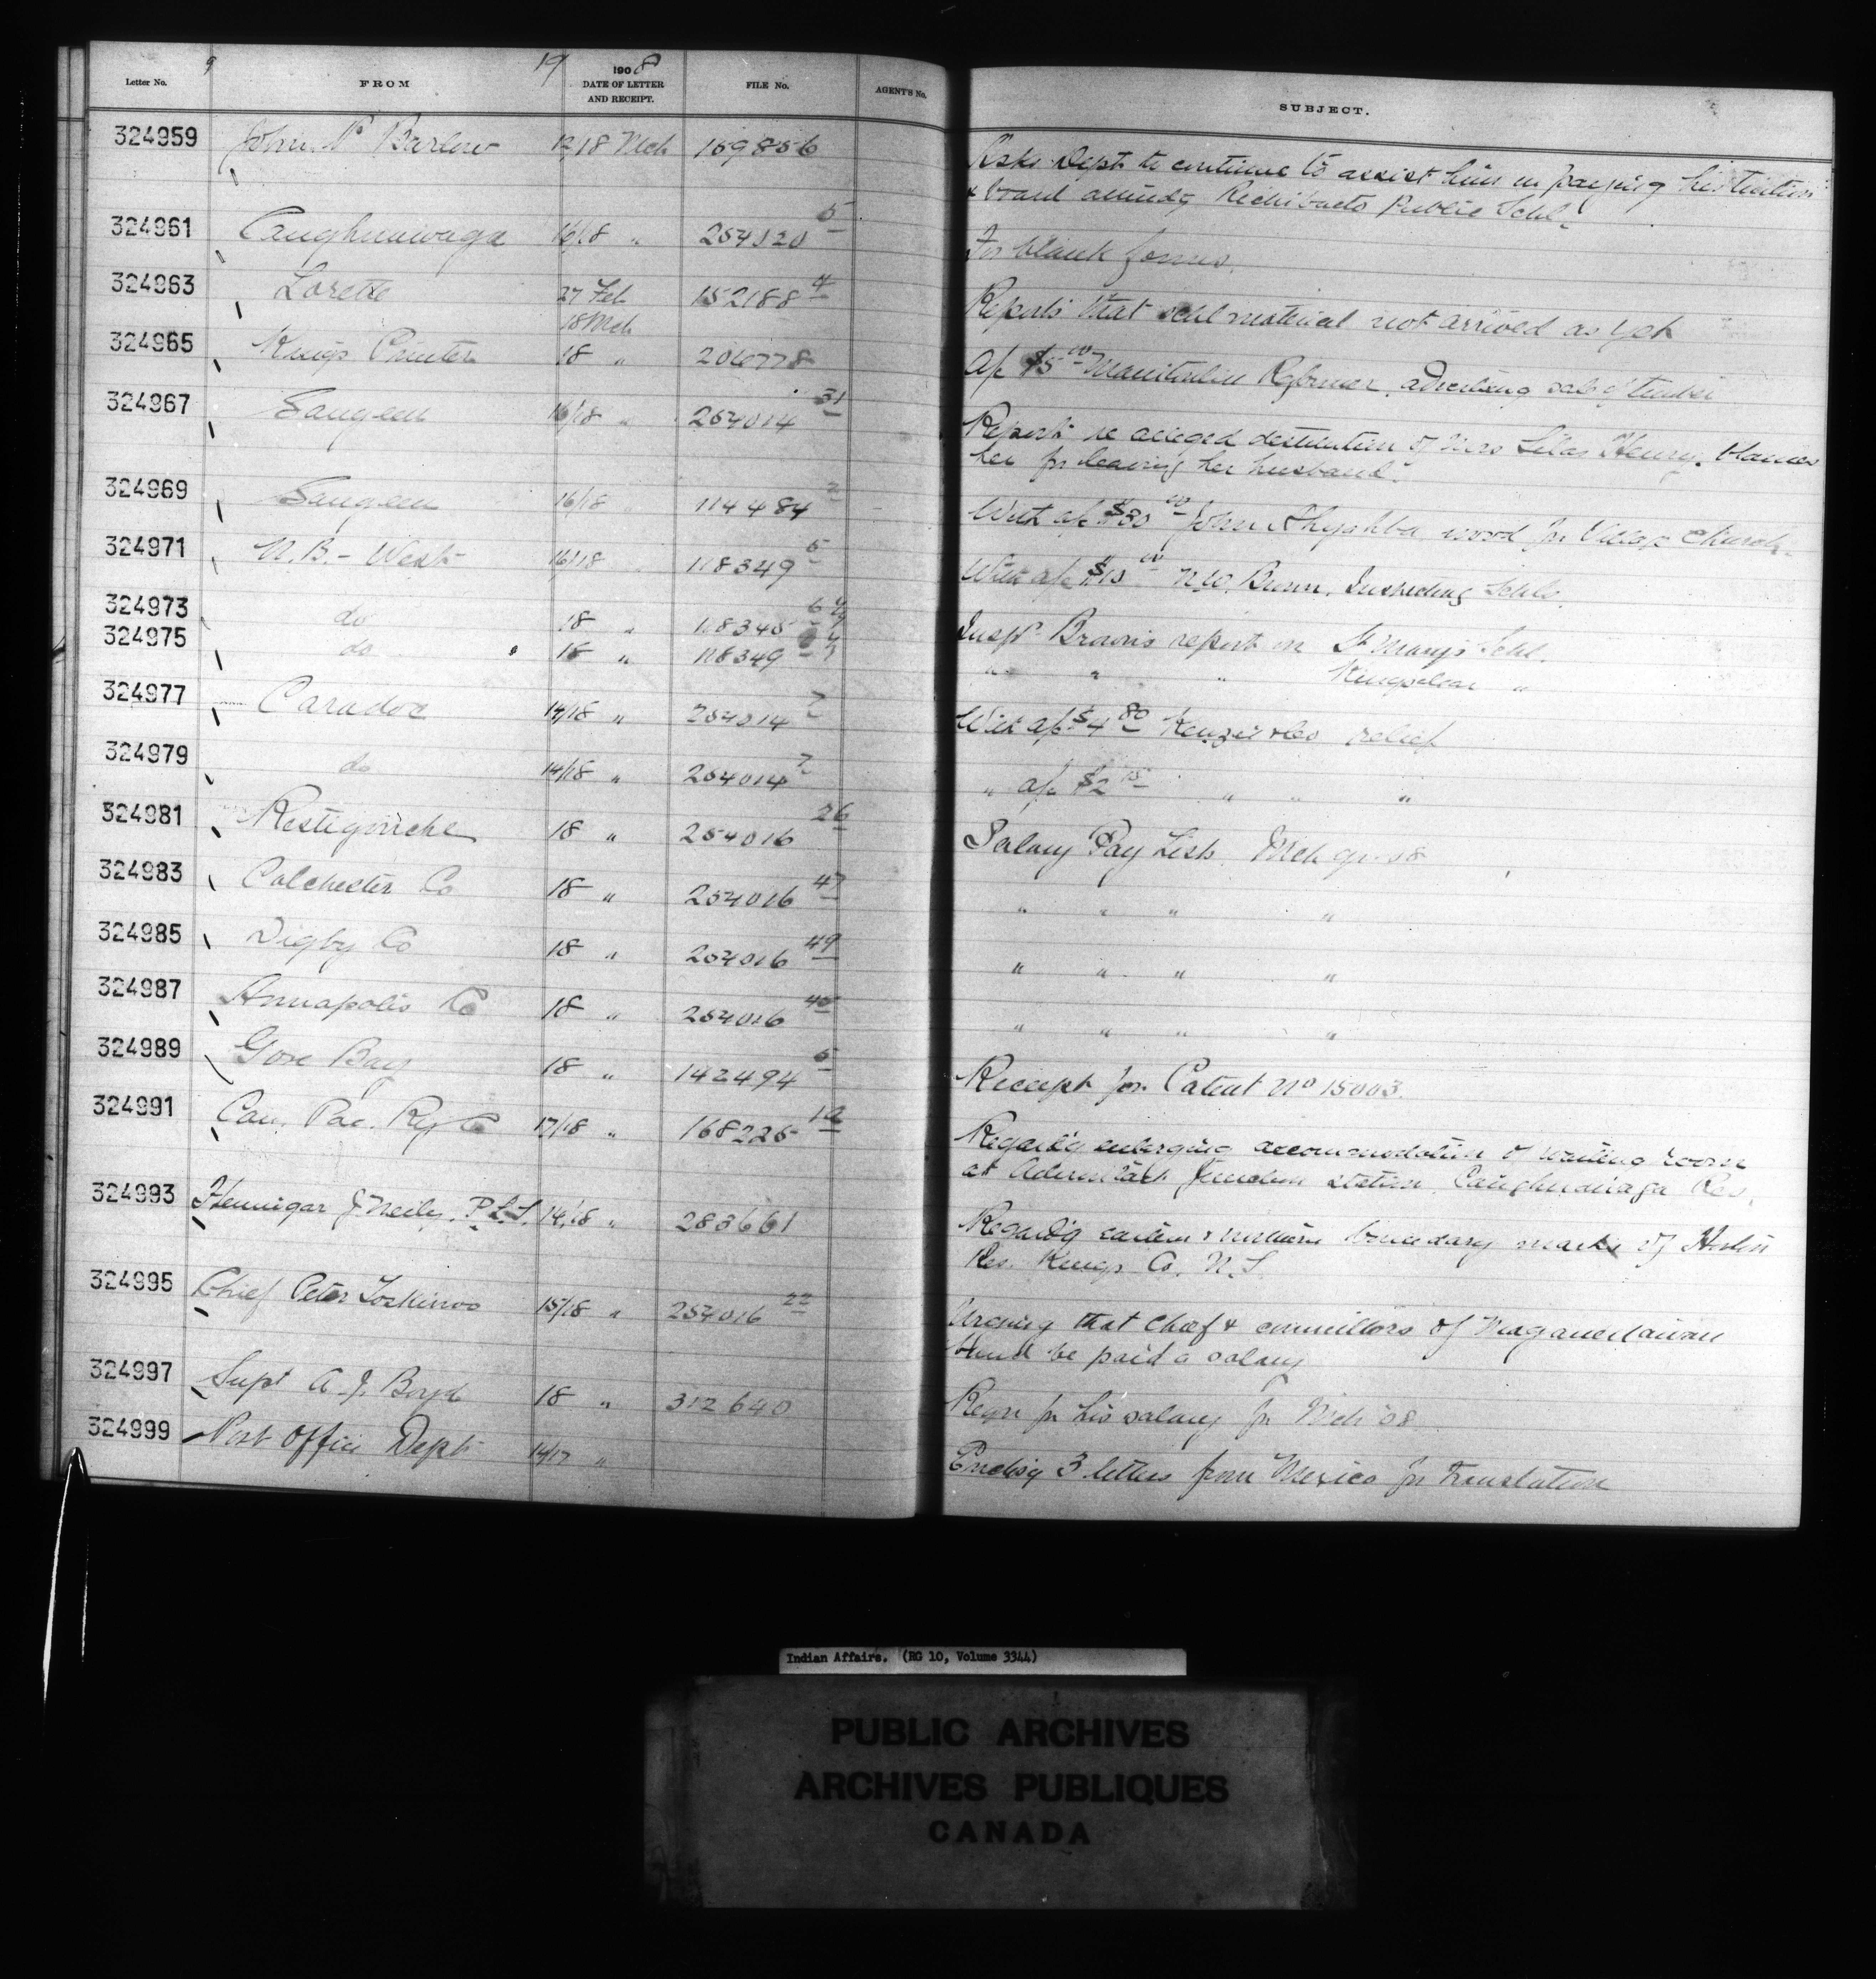 19
Letter No. FROM 1908 DATE OF LETTER AND RECEIPT. FILE No. AGENT'S No. SUBJECT.
324959 John P Barlow 12/18 Mch 159856 Asks Dept to continue to assist him in paying his tuition
& board attendg Richibucto Public Schl.
324961 Caughnawaga 16/18 " 254020 5 For blank forms.
324963 Lorette 27 Feb 18 Mch 152188 4 Reports that schl material not arrived as yet
324965 Kings Printer 18 " 206778 a/c $5 00 Manitoulin Reformer, advertising sale of timber
324967 Saugeen 16/18 " 254014 31 Reports re alleged destitution of Mrs Silas Henry. blames
her for leaving her husband.
324969 Saugeen 16/18 114484 2 With a/c $30 00 John wood for Village Church
324971 N.B. - West 16/18 118349 5 With a/c $10 00 Inspecting Schls.
324973 do 18 " Inspr Brown's report on St Mary's Schl.
324975 do 18 " 118349 " " " Kingsclear "
324977 Caradoc 14/18 " 254014 7 With a/c $4 80 Kenzie & Co relief
324979 do 14/18 " 254014 7 " a/c $2 " " "
324981 Restigouche 18 " 254016 26 Salary Pay List. Mch qr. 08
324983 Colchester Co 18 " 254016 47 " " " "
324985 Digby Co 18 " 254016 49 " " " "
324987 Annapolis Co 18 " 254016 45 " " " "
324989 Gore Bay 18 " 142494 5 Receipt for Patent No 15003.
324991 Can. Pac. Ry Co 17/18 " 168225 Regardg enlarging accommodation of waiting room
at Adirondack Junction station, Caughnawaga Res.
324993 Hennigar J. Neily. P.L.S. 14/18 " 283661 Regardg eastern & northern boundary marks of
Res. Kings Co. N.S.
324995 Chief Peter 15/18 " 254016 22 Urging that Chief & councillors of Maganettawan
Band be paid a salary
324997 Supt A. J. Boyd 18 " 312640 Reqn for his salary for Mch '08
324999 Post Office Dept 14/17 " Enclosg 3 letters from Mexico for translation
Indian Affairs. (RG 10, Volume 3344)
PUBLIC ARCHIVES
ARCHIVES PUBLIQUES
CANADA